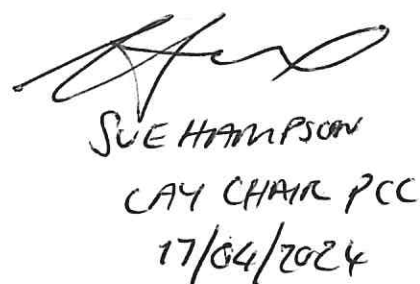 SUE HAMPSON
LAY CHAIR PCC
17/04/2024